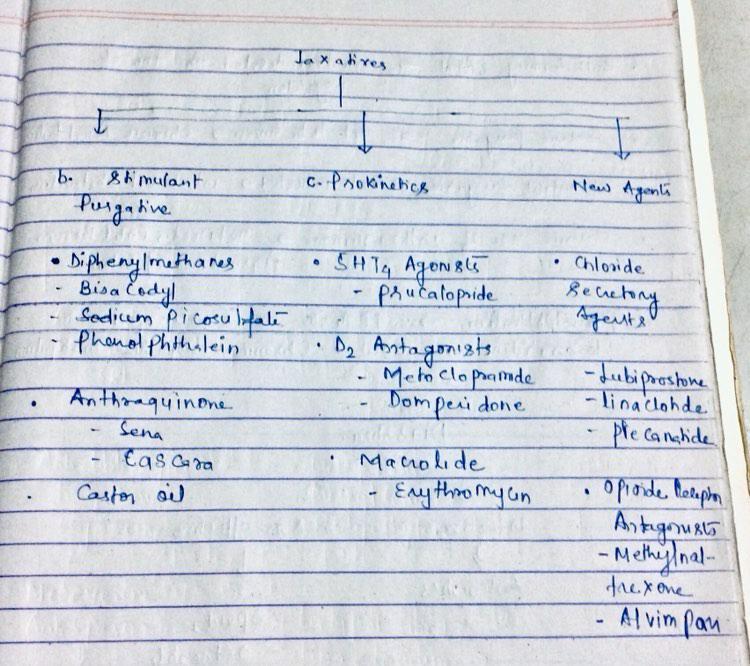 Laxatives
b. Stimulant
Purgative
• Diphenylmethanes
- Bisacodyl
- Sodium picosulfate
- Phenolphthalein
• Anthraquinone
- Sena
- Cascara
• Castor oil
c. Prokinetics
• 5HT4 Agonists
- Prucalopride
• D2 Antagonists
- Metoclopramide
- Domperidone
• Macrolide
- Erythromycin
New Agents
• Chloride
Secretory
Agents
- Lubiprostone
- Linaclotide
- Plecanatide
• Opioide Receptor
Antagonists
- Methylnal-
trexone
- Alvimpan